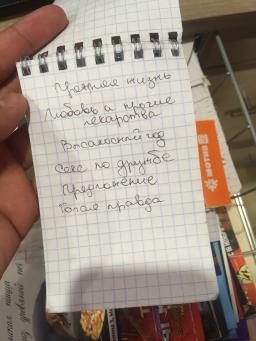 Прежняя жизнь
Любовь и прочие
лекарства
Високосный год
Секс по дружбе
Предложение
Голая правда
МОТИВ